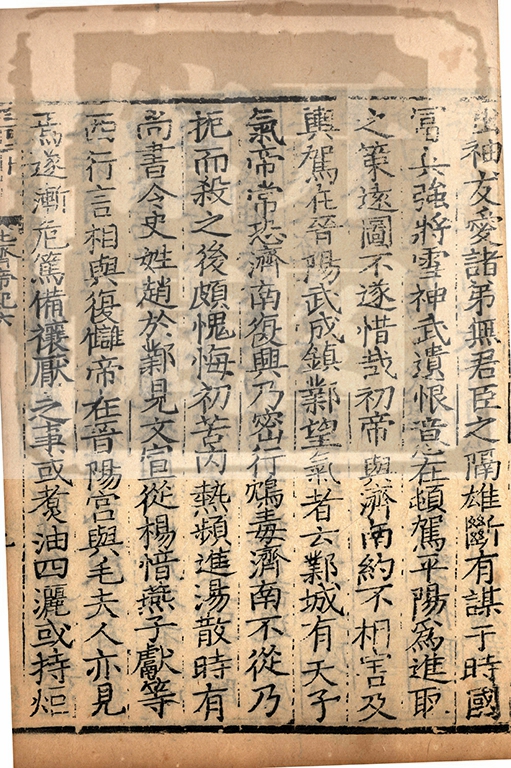 出袖友愛諸弟無君臣之隔雄斷有謀于時國
富兵強將雪神武遺恨意在頓駕平陽為進取
之策遠圖不遂惜哉初帝與濟南約不相害及
輿駕在晉陽武成鎮鄴望氣者云鄴城有天子
氣帝常恐濟南復興乃密行鴆毒濟南不從乃
扼而殺之後頗愧悔初苦內熱頻進湯散時有
尚書令史姓趙於鄴見文宣從楊愔燕子獻等
西行言相與復讎帝在晉陽宮與毛夫人亦見
焉遂漸危篤備禳厭之事或煑油四灑或持炬